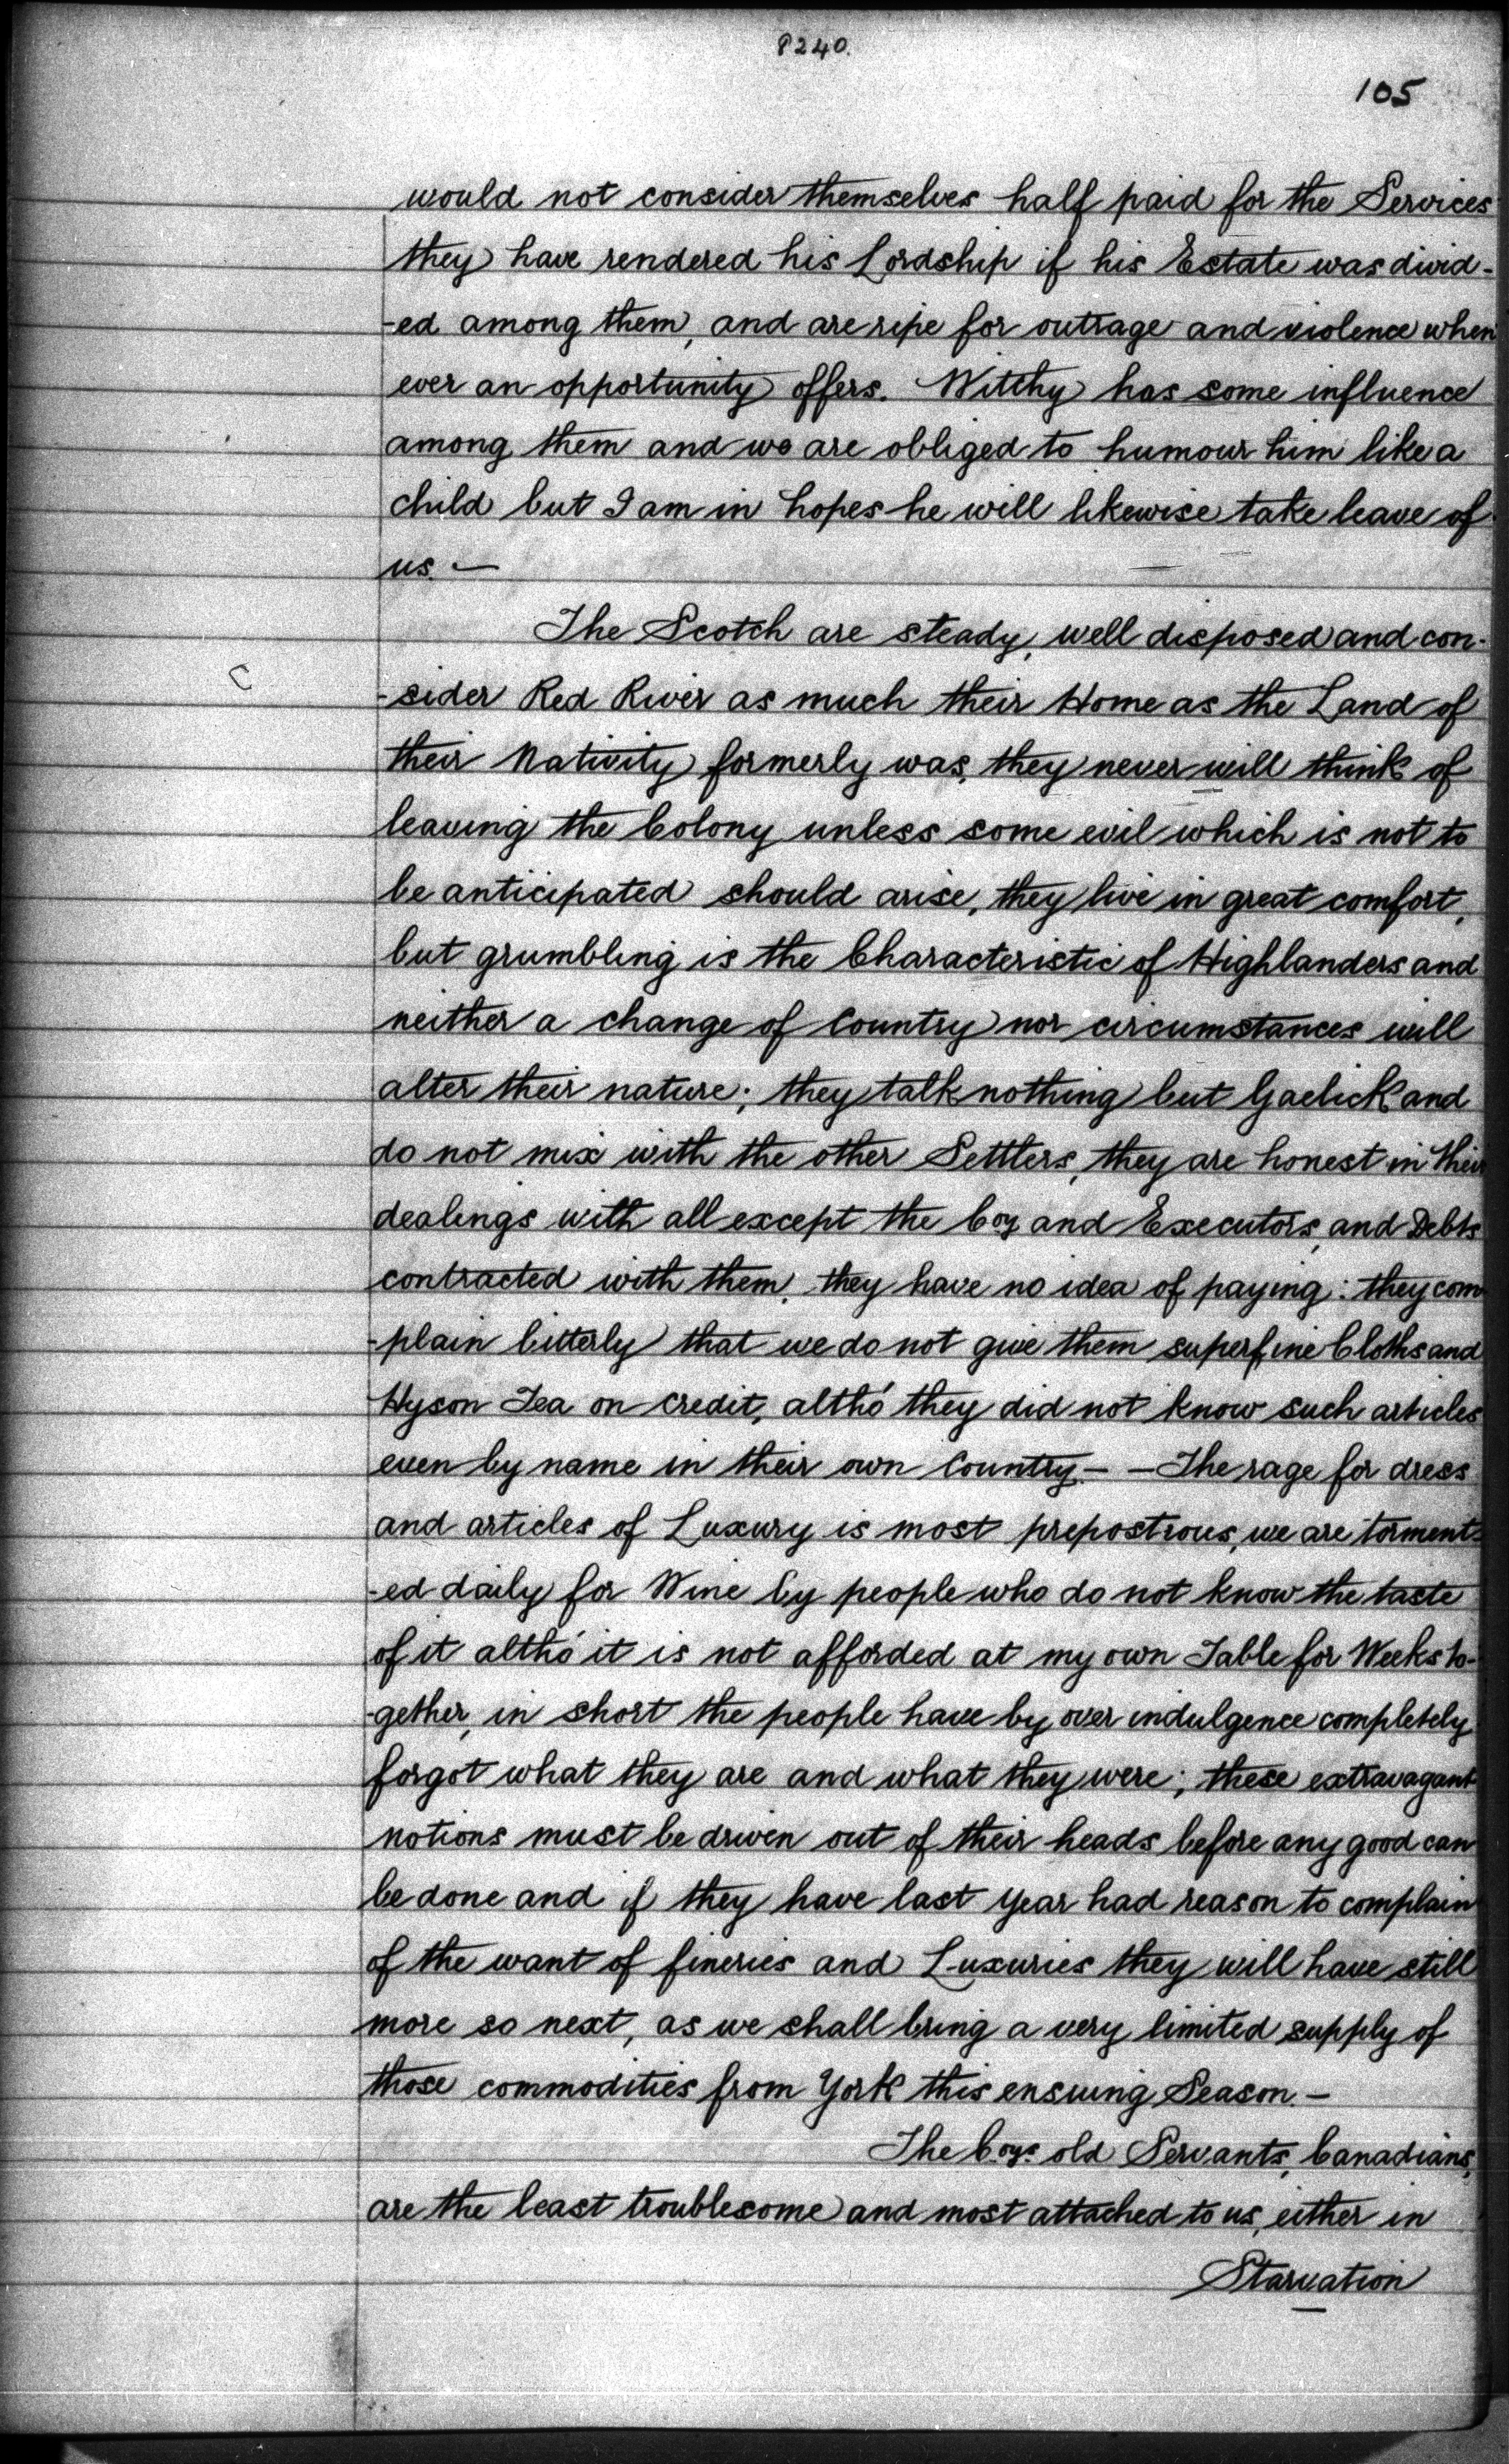 8240.
105
would not consider themselves half paid for the Services
they have rendered his Lordship if his Estate was divid-
-ed among them, and are ripe for outrage and violence when
ever an opportunity offers. Witchy has some influence
among them and we are obliged to humour him like a
child but I am in hopes he will likewise take leave of
us. —
The Scotch are steady, well disposed and con-
C
-sider Red River as much their Home as the Land of
their Nativity formerly was, they never will think of
leaving the Colony unless some evil which is not to
be anticipated should arise, they live in great comfort,
but grumbling is the Characteristic of Highlanders and
neither a change of Country nor circumstances will
alter their nature; they talk nothing but Gaelick and
do not mix with the other Settlers, they are honest in their
dealings with all except the Coy and Executors, and Debts
contracted with them, they have no idea of paying: they com
-plain bitterly that we do not give them superfine Cloths and
Hyson Tea on credit, altho' they did not know such articles
even by name in their own Country. — — The rage for dress
and articles of Luxury is most prepostrous, we are torment-
-ed daily for Wine by people who do not know the taste
of it altho' it is not afforded at my own Table for Weeks to-
-gether, in short the people have by over indulgence completely
forgot what they are and what they were; these extravagant
notions must be driven out of their heads before any good can
be done and if they have last year had reason to complain
of the want of fineries and Luxuries they will have still
more so next, as we shall bring a very limited supply of
those commodities from York this ensuing Season. —
The Coys. old Servants, Canadians,
are the least troublesome and most attached to us, either in
Starvation